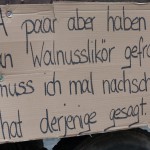 A paar aber haben
an Walnusslikör gefra
muss ich mal nachsch
hat derjenige gesagt.